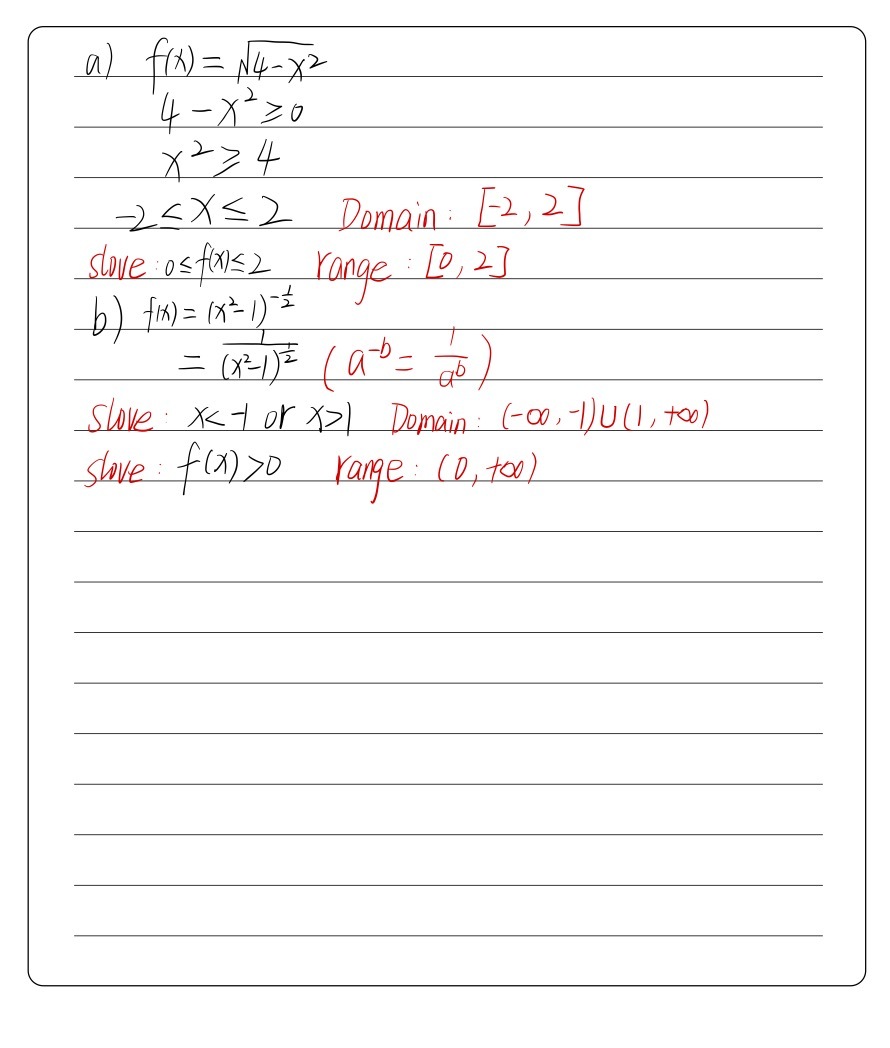 a) f(x) = √4-x²
4 - x² ≥ 0
x² ≥ 4
-2 ≤ x ≤ 2 Domain: [-2, 2]
slove: 0 ≤ f(x) ≤ 2 range: [0, 2]
b) f(x) = (x²-1)^-1/2
= 1/(x²-1)^1/2 (a^-b = 1/a^b)
slove: x<-1 or x>1 Domain: (-∞, -1)∪(1, +∞)
slove: f(x)>0 range: (0, +∞)